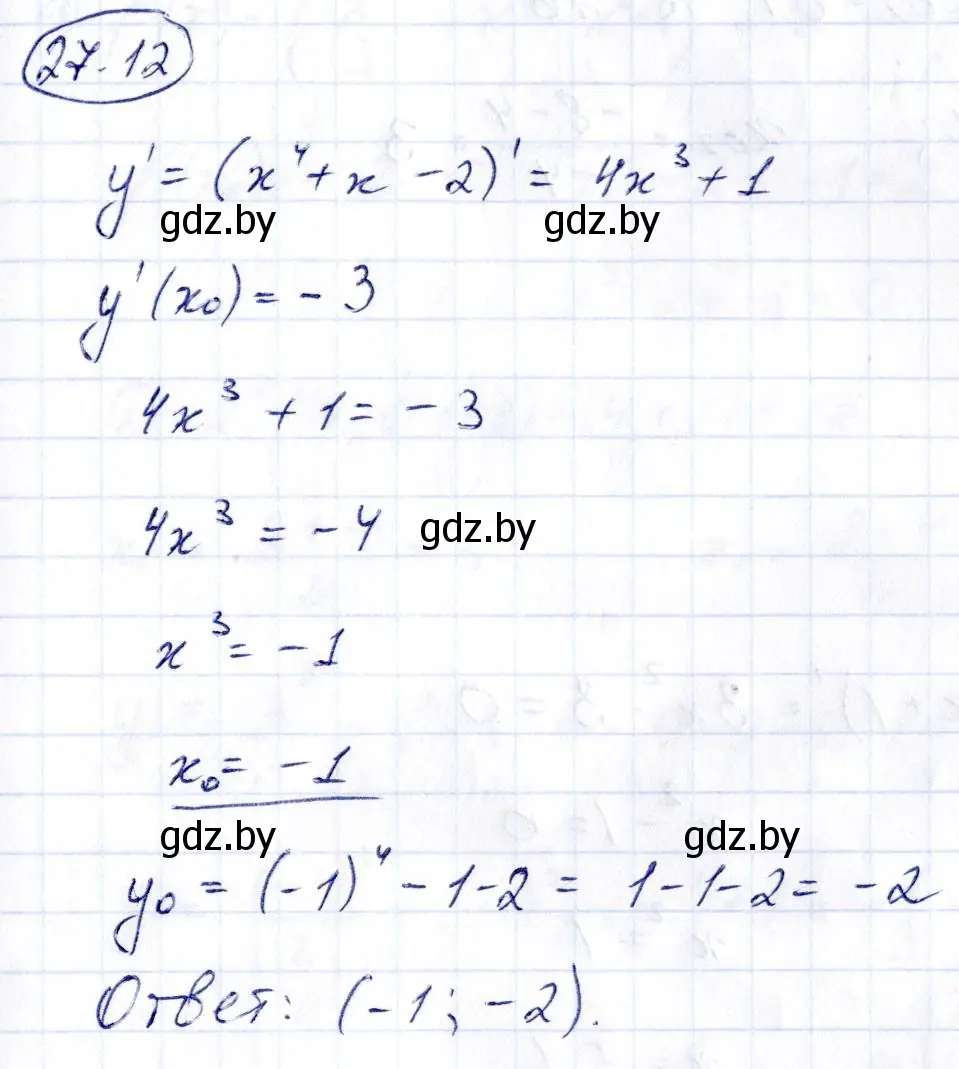 27.12
y' = (x⁴ + x - 2)' = 4x³ + 1
gdz.by gdz.by
y'(x₀) = - 3
4x³ + 1 = - 3
4x³ = - 4 gdz.by
x³ = - 1
x₀ = - 1
gdz.by gdz.by
y₀ = (-1)⁴ - 1 - 2 = 1 - 1 - 2 = - 2
Ответ: (-1; -2).